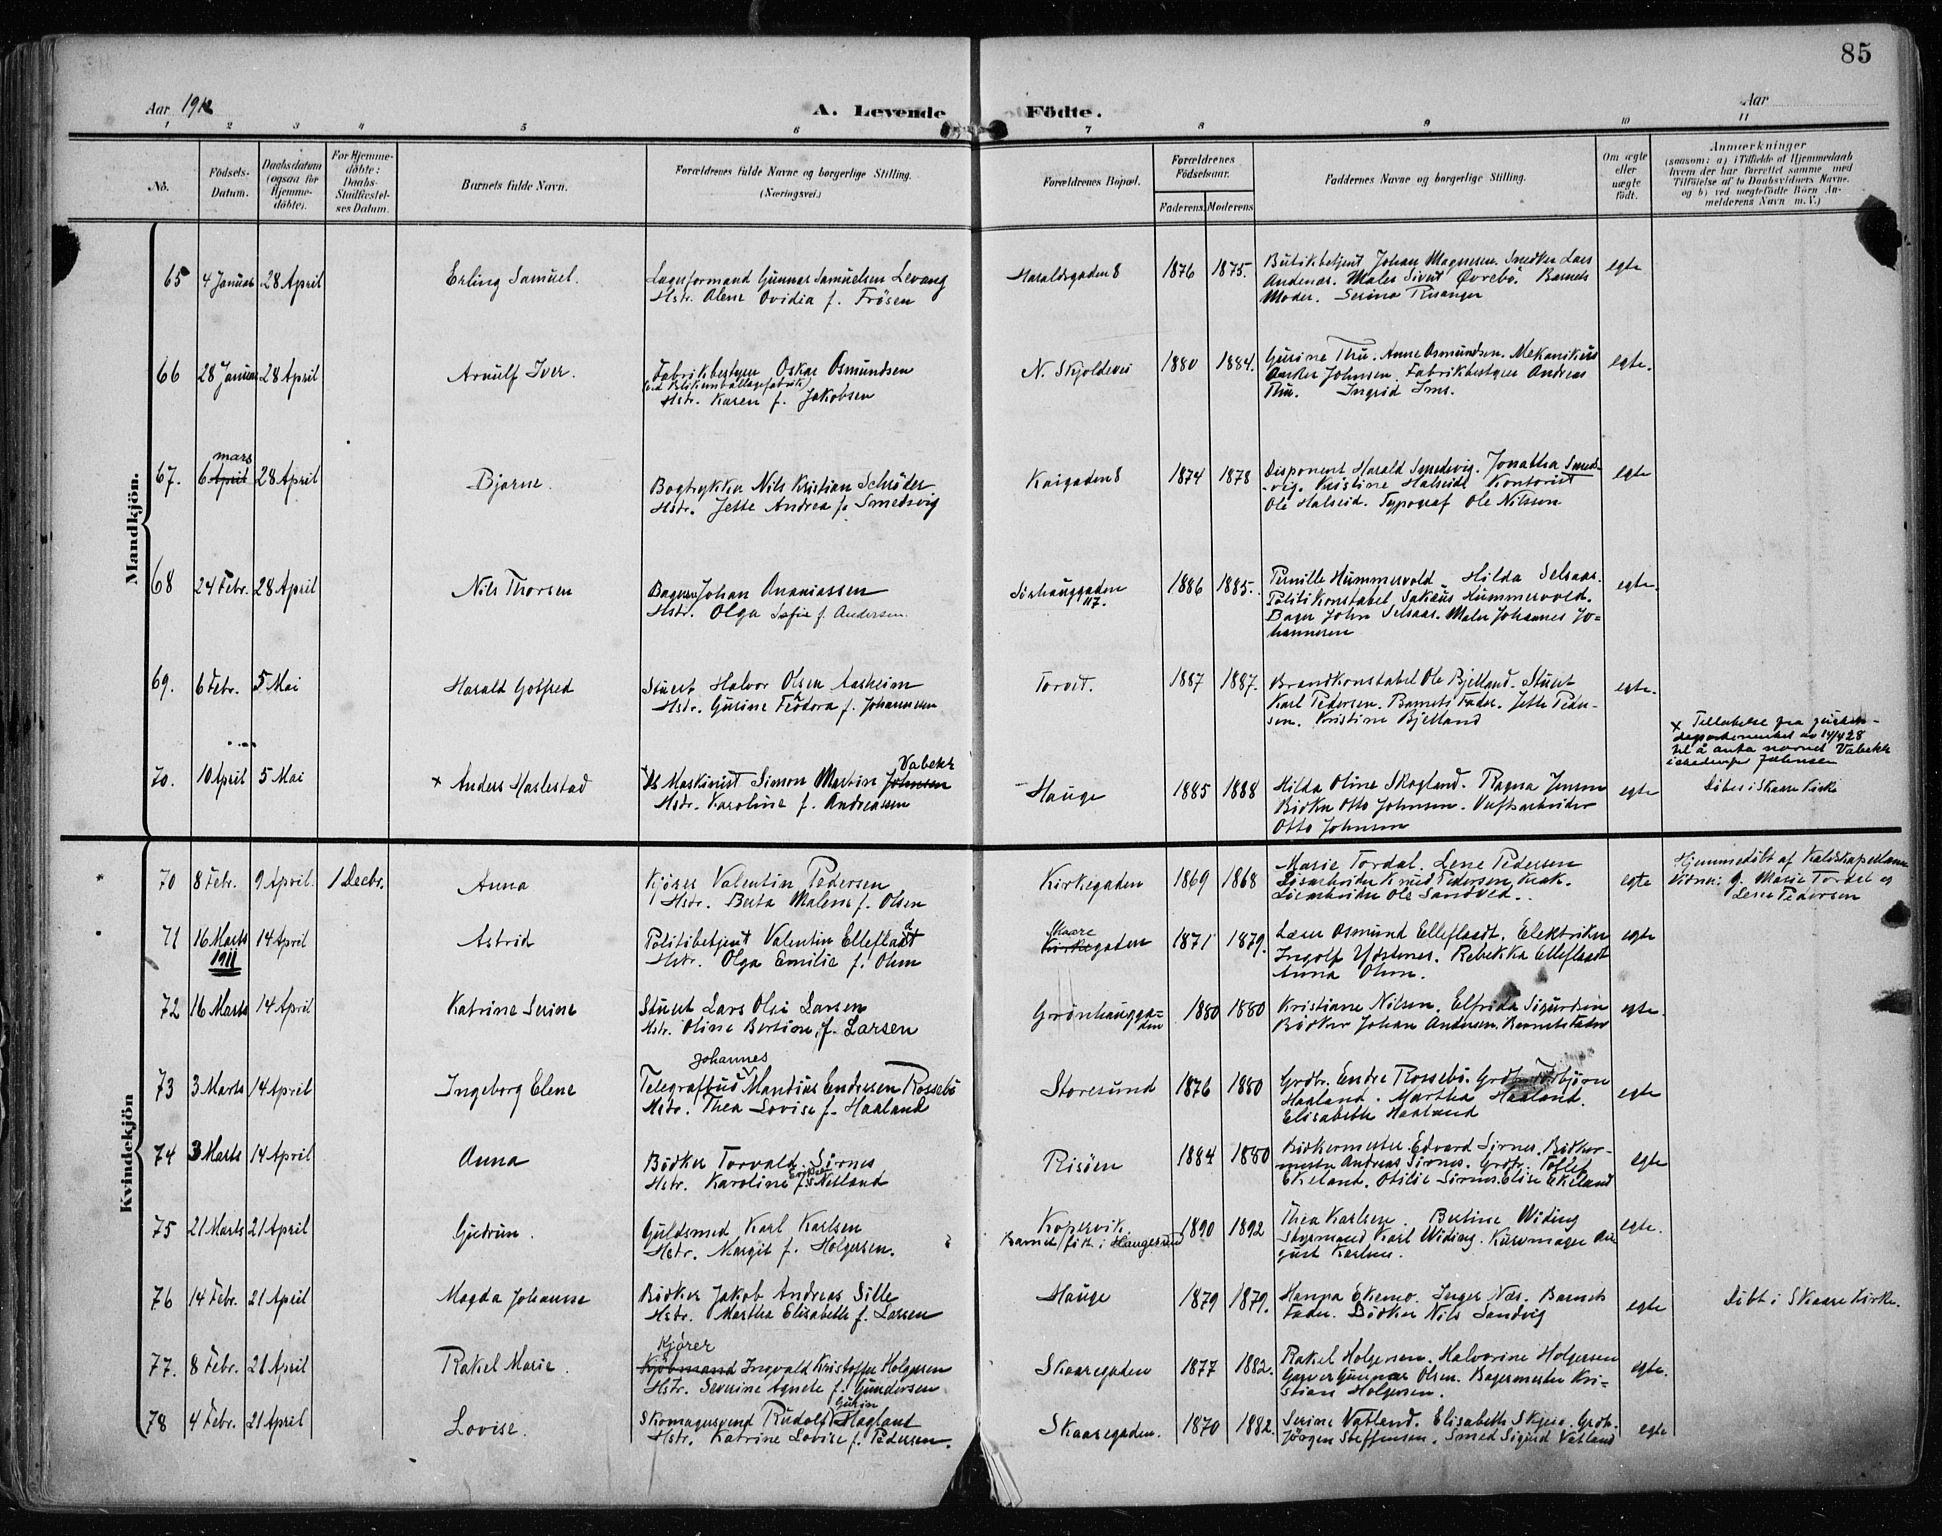 85
Aar 1912
A. Levende Födte.
Aar
1 2 3 4 5 6 7 8 9 10 11
No.
Födsels-
Datum.
Daabsdatum
(ogsaa for
Hjemme-
døbte).
For Hjemme-
døbte:
Daabs-
Stadfæstel-
ses Datum.
Barnets fulde Navn.
Forældrenes fulde Navne og borgerlige Stilling.
(Næringsvei.)
Forældrenes Bopæl.
Forældrenes
Födselsaar.
Faderens. Moderens
Faddernes Navne og borgerlige Stilling.
Om ægte
eller
uægte
födt.
Anmærkninger
(saasom: a) i Tilfælde af Hjemmedaab
hvem der har forrettet samme med
Tilföielse af to Daabsvidners Navne.
og b) ved uægtefödte Börn An-
melderens Navn m.V.)
Mandkjön.
65 4 Januar 28 April Erling Samuel. Lagerformand Gunnar Samuelsen Levang
Hstr. Olene Ovidia f. Frösen
Haraldsgaden 8 1876 1875. Butikbetjent Johan Magnesen. Snedker Lars
Andenæs. Maler Sivert Øvrebö. Barnets
Moder. Serina Risanger
egte
66 28 Januar 28 April Arnulf Iver. Fabrikbestyrer Oskar Osmundsen
(ved Blikemballagefabrik)
Hstr. Karen f. Jakobsen
N. Skjoldevei 1880 1884. Gurine Thu. Anne Osmundsen. Mekanikus
Anker Johnsen. Fabrikbestyrer Andreas
Thu. Ingrid Ims.
egte.
67. 6 April mars 28 April Bjarne. Bogtrykker Nils Kristian Schröder
Hstr. Jette Andrea f. Smedsvig
Kaigaden 8 1874 1878 Disponent Harald Smedsvig. Jonatha Smeds-
-vig. Kristine Halseide Kontorist
Ole Halseid. Typograf Ole Nilsen
egte
68 24 Febr. 28 April Nils Thorsen Bagersv Johan Ananiassen
Hstr. Olga Sofie f. Andersen.
Sörhauggaden
117.
1886 1885. Pernille Hummervold Hilda Selsaas.
Politikonstabel Sakæus Hummervold.
Bager John Selsaas. Maler Johannes Jo-
hannesen
egte.
69. 6 Febr. 5 Mai Harald Gotfred Stuert Halvor Olsen Aasheim
Hstr. Gurine Feodora f. Johannesen
Torvet. 1887 1887. Brandkonstabel Ole Bjelland. Stuert
Karl Pedersen. Barnets Fader. Jette Peder-
sen. Kristine Bjelland
egte.
70. 10 April 5 Mai × Anders Haslestad Ds Maskinist Simon Martin Johnsen Vabekk
Hstr. Karoline f. Andreassen
Hauge 1885 1888 Hilda Oline Skogland. Ragna Jensen
Bödker Otto Johnsen. Værftsarbeider
Otto Johnsen
egte
× Tilladelse fra justis-
departementet av 14/4 28
til å anta navnet Vabekk
istedenfor Johnsen
Döbt i Skaare Kirke
Kvindekjön
70 8 Febr. 9 April. 1 Decbr. Anna Kjörer Valentin Pedersen
Hstr. Berta Malene f. Olsen
Kirkegaden 1869 1868 Marie Tordal. Lene Pedersen
Lösarbeider Knud Pedersen Krak.
Lösarbeider Ole Sandved.
egte
Hjemmedöbt af Kaldskapellan
Vidner: J. Marie Tordal og
Lene Pedersen
71 16 Marts 1911 14 April Astrid Politibetjent Valentin Elleflaadt
Hstr. Olga Emilie f. Ohm
Kirkegaden Skaare 1871 1879. Lærer Osmund Elleflaadt. Elektriker
Ingolf Ydstenes. Rebekka Elleflaadt
Anna Ohm.
egte
72 16 Marts 14 April Katrine Serine Stuert Lars Olai Larsen
Hstr. Oline Bertine f. Larsen
Grönhaugga-
den
1880 1880 Kristiane Nilsen. Elfrida Sigurdsen
Bödker Johan Andersen. Barnets fader
egte.
73 3 Marts 14 April Ingeborg Elene Telegrafbud Johannes Mandius Endresen Rossebö
Hstr. Thea Lovise f. Haaland
Storesund 1876 1880 Grdbr. Endre Rossebö. Grdbr. Torbjörn
Haaland. Martha Haaland.
Elisabeth Haaland
egte
74 3 Marts 14 April Anna Bödker Torvald Sörnes
Hstr. Karoline f. Netland
Risöen 1884 1880 Bödkermester Edvard Sirnes. Bödker-
mester Andreas Sirnes. Grdbr. Tollef
Ekeland. Otilie Sirnes. Elise Ekeland
egte
75 21 Marts 21 April Gudrun. Guldsmed Karl Karlsen
Hstr. Margit f. Holgersen.
Kopervik
Barnet födt i Haugesund
1890 1892 Thea Karlsen. Bertine Widing
Styrmand Karl Widing. Kurvmager Au-
gust Karlsen.
egte.
76 14 Febr. 21 April Magda Johanne Bödker Jakob Andreas Sille
Hstr. Martha Elisabeth f. Larsen
Hauge 1879 1879. Hanna Ekemo. Inger Næs. Barnets
Fader. Bödker Nils Sandvig
egte
Döbt i Skaare Kirke.
77. 8 Febr. 21 April Rakel Marie. Kjöbmand Kjörer Ingvald Kristoffer Holgersen
Hstr. Severine Agnete f. Gundersen
Skaaregaden 1877 1882. Rakel Holgersen. Halvorine Holgersen
Garver Gunnar Olsen. Bagermester Kri-
stian Holgersen.
egte.
78 4 Febr. 21 April Lovise. Skomagersvend Rudolf Hagland
Hstr. Katrine Lovise f. Pedersen.
Skaaregaden. 1870 1882. Serine Vatland. Elisabeth Skjeie. Grdb.
Jörgen Steffensen. Smed Sigurd Vatland
egte